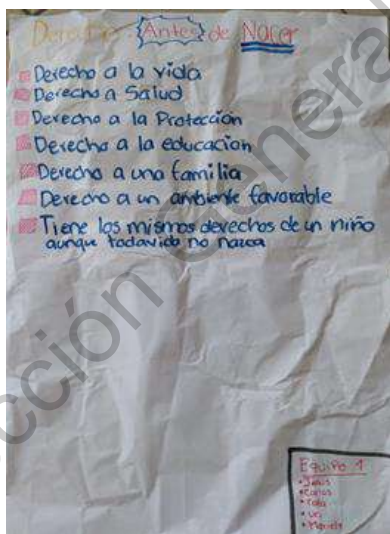 Derecho Antes de Nacer
Derecho a la vida
Derecho a Salud
Derecho a la Protección
Derecho a la educación
Derecho a una familia
Derecho a un ambiente favorable
Tiene los mismos derechos de un niño
aunque todavida no nazca
Equipo 1
• Jesús
• Carlos